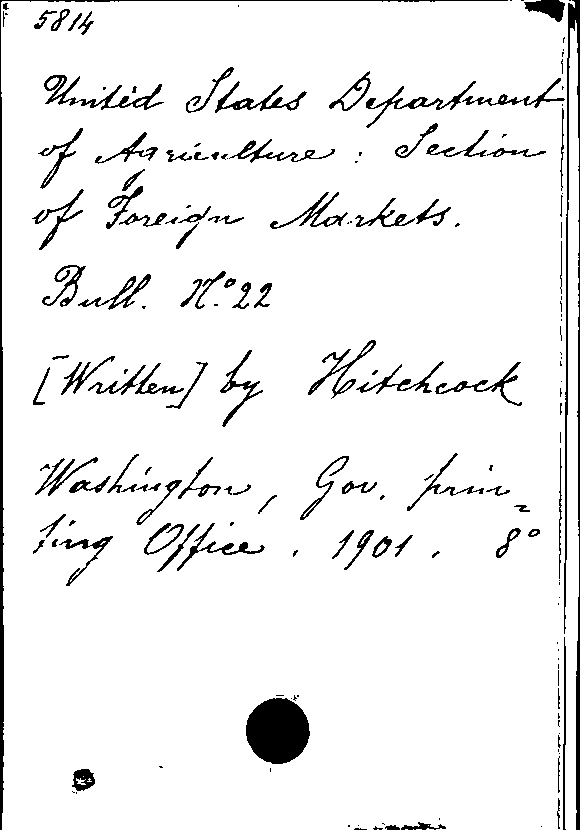 5814
United States Department
of Agriculture : Section
of Foreign Markets.
Bull. N.º 22
[Written] by Hitchcock
Washington, Gov. prin=
ting Office . 1901 . 8º